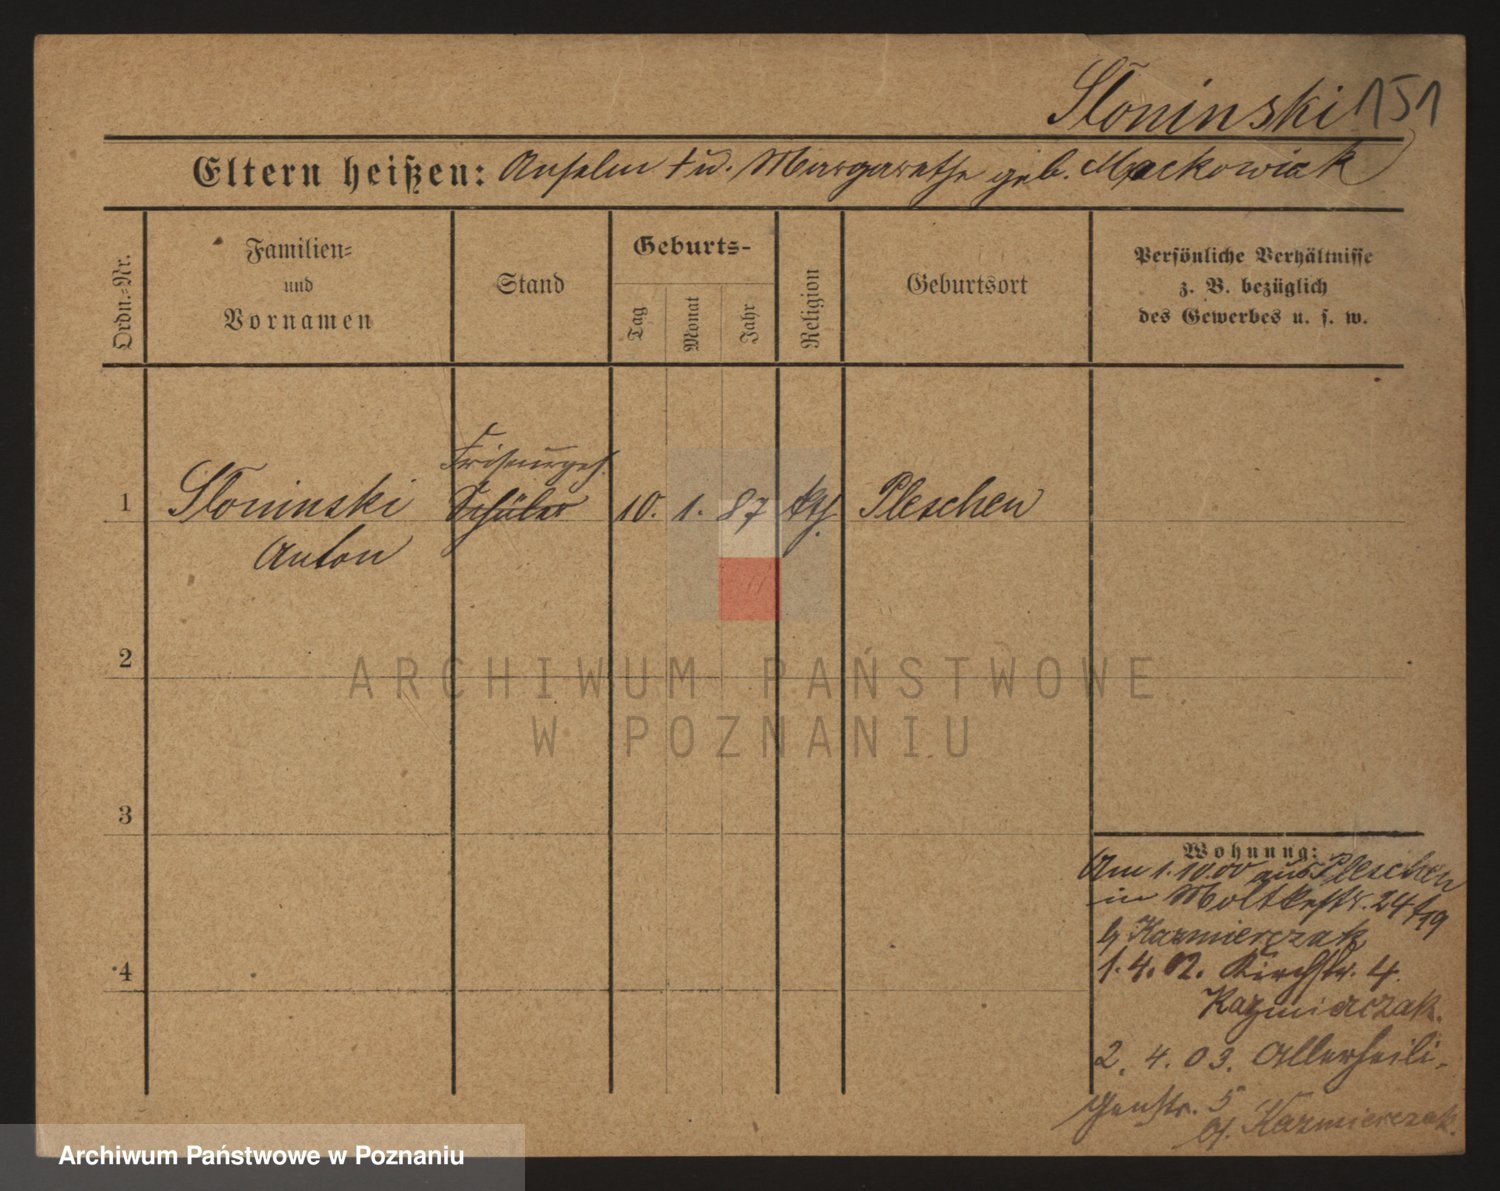 Słoninski 151
Eltern heißen: Anselm † u. Margarethe geb. Mackowiak
Ordn.-Nr.
Familien-
und
Vornamen
Stand
Geburts-
Tag
Monat
Jahr
Religion
Geburtsort
Persönliche Verhältnisse
z. B. bezüglich
des Gewerbes u. s. w.
Friseurgeh.
1 Słoninski Schüler 10. 1. 87 kth. Pleschen
Anton
2
3
4
Wohnung:
Am 1.10.00 aus Pleschen
in Moltkestr. 24
b/ Kazmierczak
1. 4. 02. Kirchstr. 4.
Kazmierczak.
2. 4. 03. Allerheili-
genstr. 5
b/. Kazmierczak.
ARCHIWUM PAŃSTWOWE
W POZNANIU
Archiwum Państwowe w Poznaniu